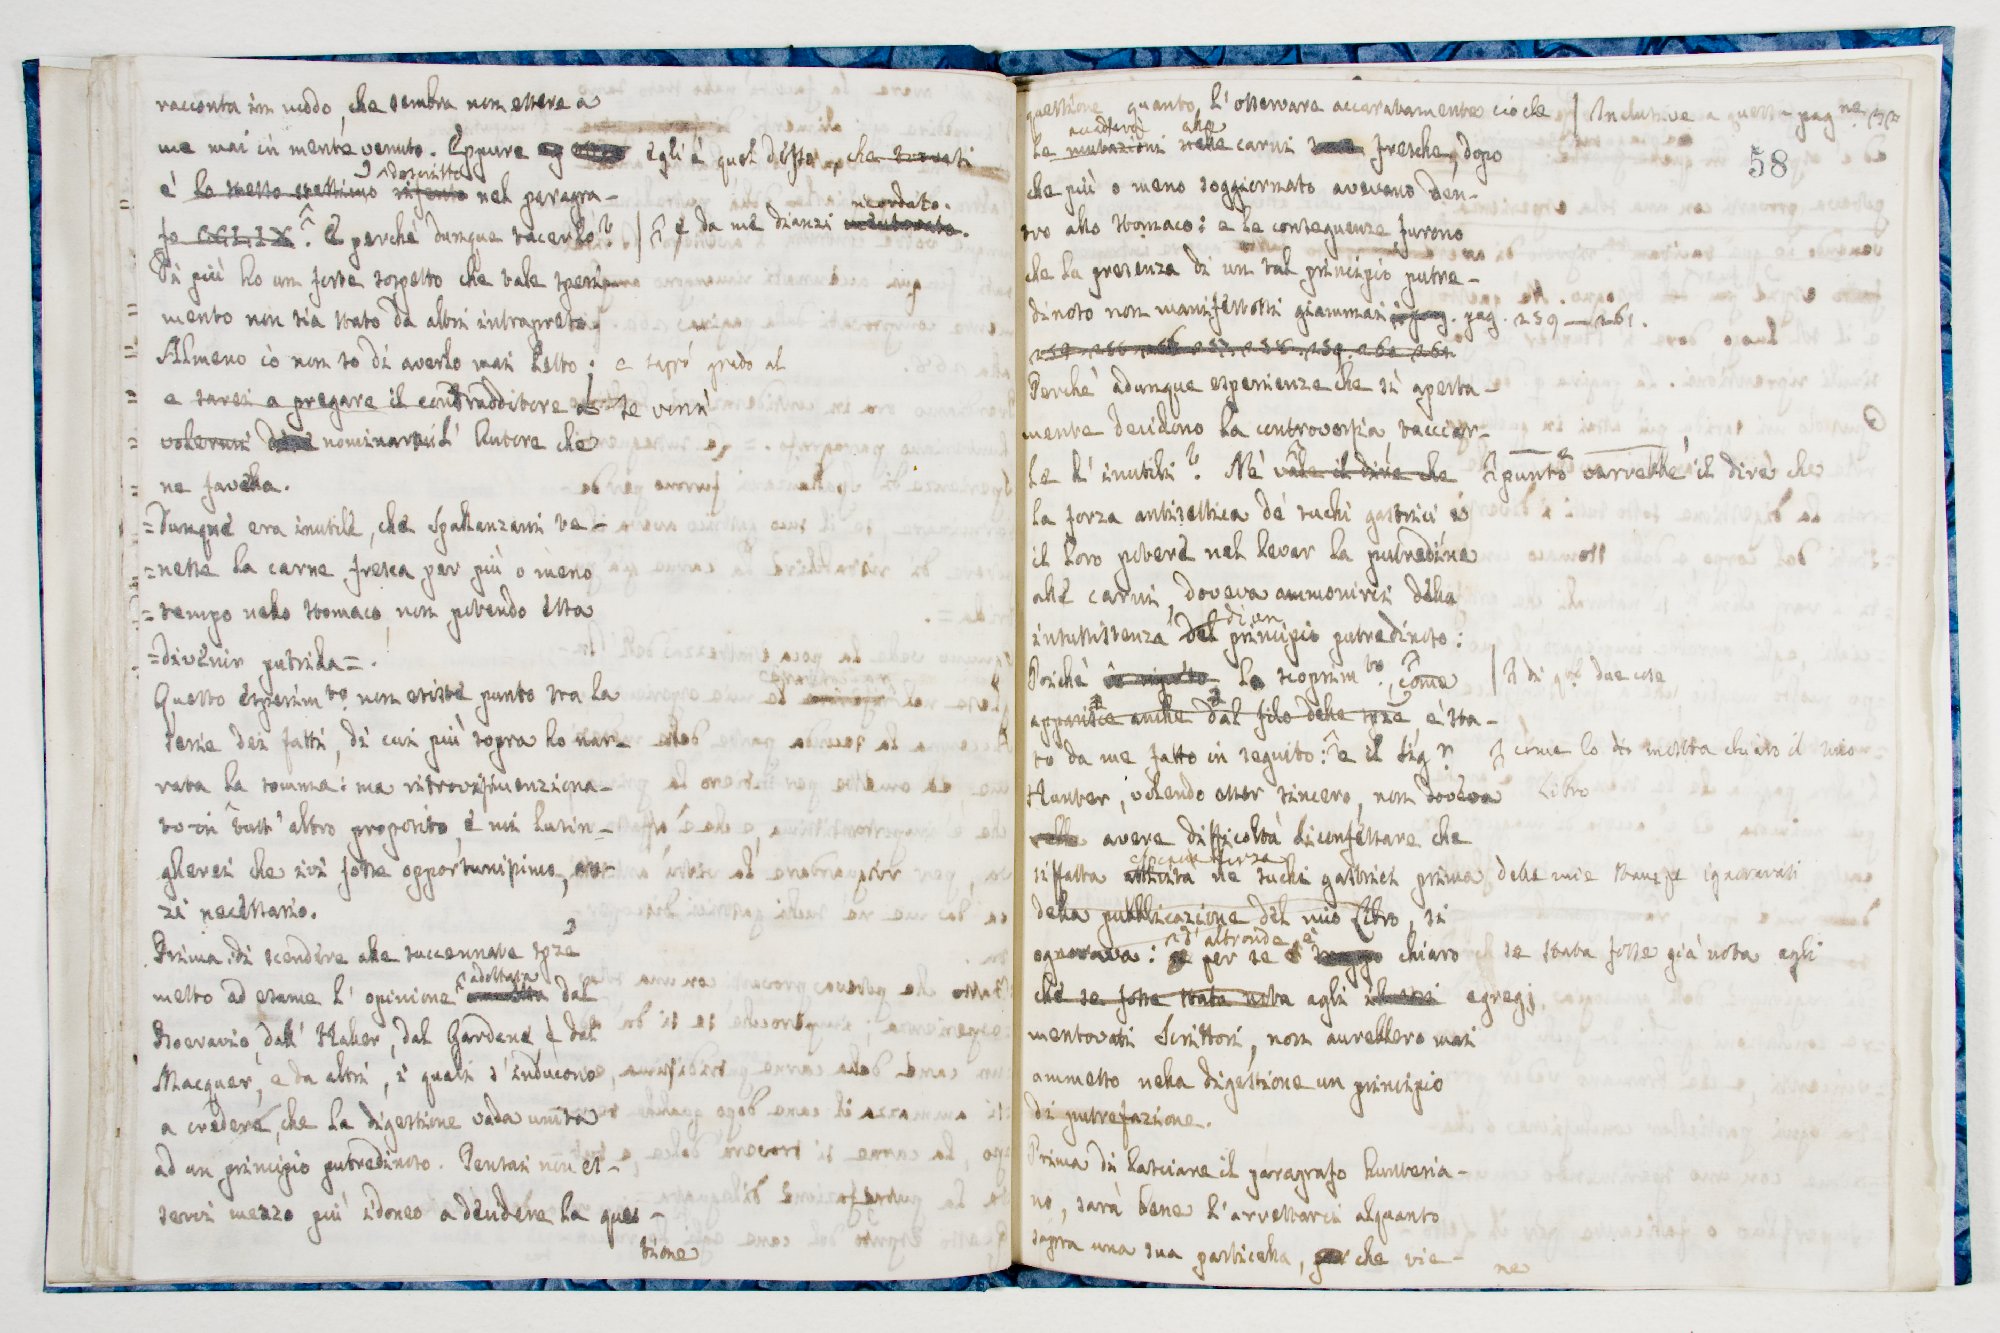 racconta in modo, che sembra non essere a
me mai in mente venuto. Eppure egli è quel desso, che trovasi
descritto
è lo stesso stessimo nel paragra-
fo CCLIX. E perchè dunque tacerlo? e da me dianzi ricordato.
Di più ho un forte sospetto che tale speri-
mento non sia stato da altri intrapreso.
Almeno io non so di averlo mai letto; e saprò grado al
e sarei a pregare il contraddittore se vorrà
volermi nominarmi l'Autore che
ne favella.
=Dunque era inutile, che Spallanzani te-
=nesse la carne fresca per più o meno
=tempo nello stomaco, non potendo essa
=divenir putrida=.
Questo esperim.to non esiste punto tra la
serie dei fatti, di cui più sopra ho nar-
rata la somma: ma ritrovasi menziona-
to in tutt'altro proposito, e mi lusin-
gherei che ivi fosse opportunissimo, an-
zi necessario.
Prima di scendere alle succennate spze
metto ad esame l'opinione adottata dal
Boeravio, dall'Haller, dal Gardane e dal
Macquer, e da altri, i quali s'inducono
a credere, che la digestione vada unita
ad un principio putredinoso. Pensai non es-
servi mezzo più idoneo a decidere la que-
stione
questione quanto l'osservare accuratamente ciò che Inclusive a questa pag.ne
58
accadeva alle
le mutazioni nelle carni fresche, dopo
che più o meno soggiornato avevano den-
tro allo stomaco: e le conseguenze furono
che la presenza di un tal principio putre-
dinoso non manifestossi giammai. pag. 259-261.
Perchè adunque esperienze che sì aperta-
mente decidono la controversia, tacciar-
le d'inutili? Nè vale il dire che punto varrebbe il dire che
la forza antisettica de' suchi gastrici e
il loro potere nel levar la putredine
alle carni doveva ammonirci della
insussistenza del principio putredinoso:
di un
Poichè la scoprim.to, come di q.te due cose
apparisce anche dal filo delle spze è sta-
to da me fatto in seguito: e il Sig.r come lo dimostra chiaro il mio
Hunter, volendo esser sincero, non doveva Libro
avere difficoltà di confessare che
siffatta attività ne' suchi gastrici prima delle mie stampe ignoravasi
della pubblicazione del mio Libro, si
d'altronde è
ignorava: e per se chiaro che se stata fosse già nota agli
che se fosse stata nota agli egregj
mentovati Scrittori, non avrebbero mai
ammesso nella digestione un principio
di putrefazione.
Prima di lasciare il paragrafo hunteria-
no, sarà bene l'arrestarci alquanto
sopra una sua particella, che vie-
ne